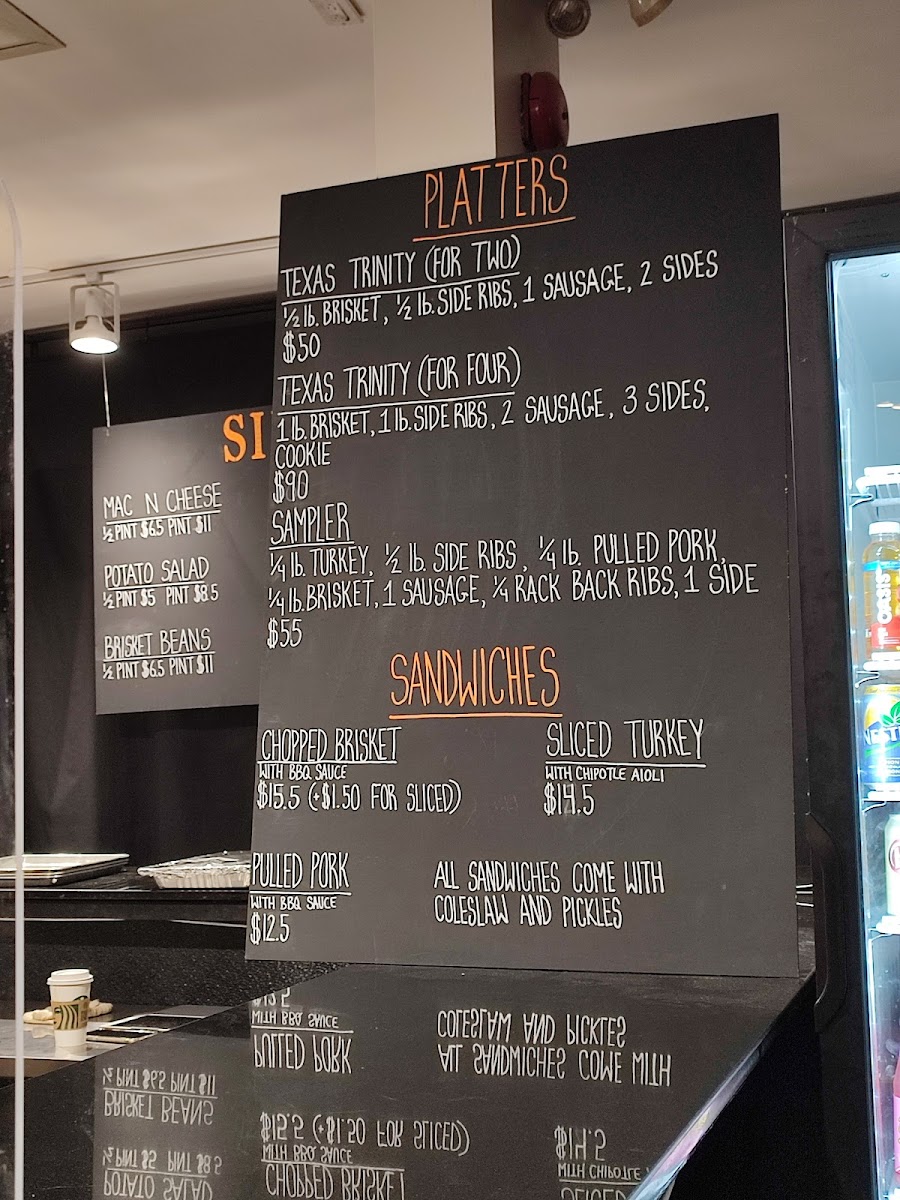 PLATTERS
TEXAS TRINITY (FOR TWO)
½ lb. BRISKET, ½ lb. SIDE RIBS, 1 SAUSAGE, 2 SIDES
$50
TEXAS TRINITY (FOR FOUR)
1 lb. BRISKET, 1 lb. SIDE RIBS, 2 SAUSAGE, 3 SIDES,
COOKIE
$90
SAMPLER
¼ lb. TURKEY, ½ lb. SIDE RIBS, ¼ lb. PULLED PORK,
¼ lb. BRISKET, 1 SAUSAGE, ¼ RACK BACK RIBS, 1 SIDE
$55
SANDWICHES
CHOPPED BRISKET
WITH BBQ SAUCE
$15.5 (+$1.50 FOR SLICED)
SLICED TURKEY
WITH CHIPOTLE AIOLI
$14.5
PULLED PORK
WITH BBQ SAUCE
$12.5
ALL SANDWICHES COME WITH
COLESLAW AND PICKLES
SI
MAC N CHEESE
½ PINT $6.5 PINT $11
POTATO SALAD
½ PINT $5 PINT $8.5
BRISKET BEANS
½ PINT $6.5 PINT $11
OASIS